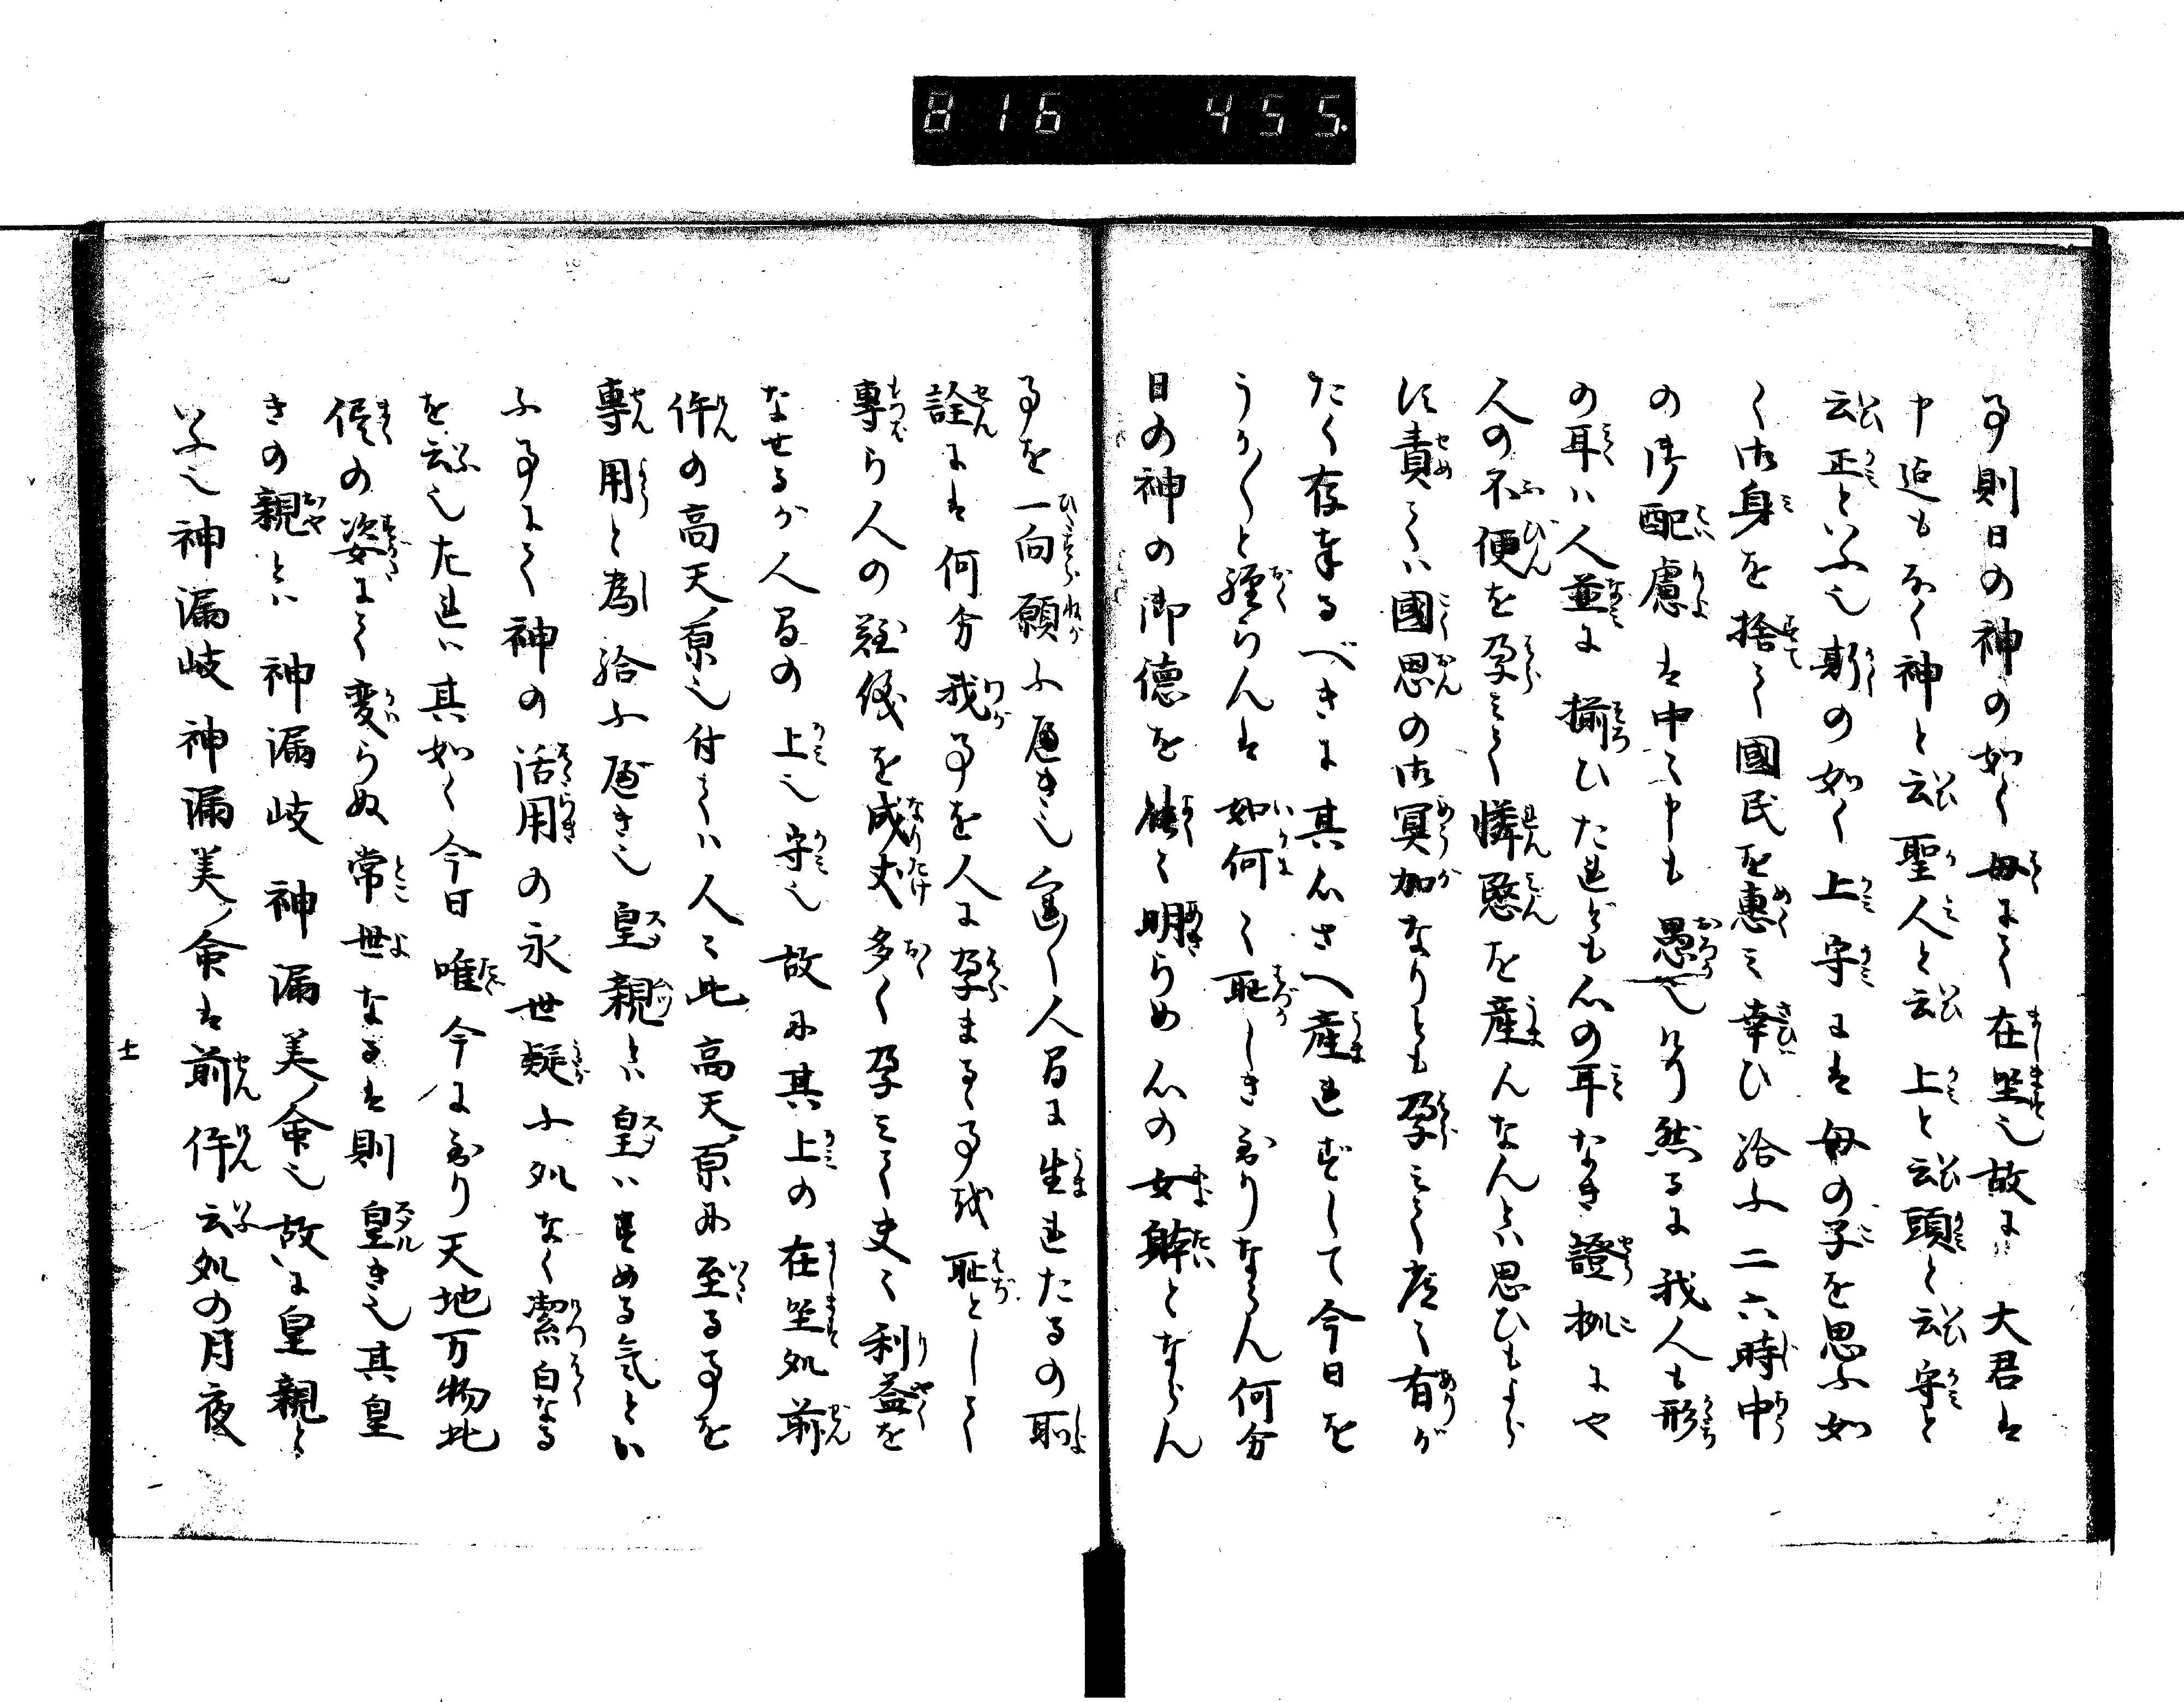 816 455.
事則日の神の如く母にて在坐也故に大君は
申迄もなく神と云聖人と云上と云頭と云守と
云正といふ也斯の如く上守には母の子を思ふ如
く御身を捨て國民を惠ミ幸ひ給ふ二六時中
の御配慮は中々申も愚也けり然るに我人も形
の耳ハ人並に揃ひたれども心の耳なき證拠にや
人の不便を孕ミて憐愍を産んなんとハ思ひもよら
に責てハ國恩の御冥加なりとも孕ミて度々有が
たく存奉るべきに其心さへ産れずして今日を
うか〱と經らんは如何〻恥しき至りならん何分
日の神の御徳を能々明らめ心の女躰とならん
事を一向願ふ可き也〱人間に生れたるの
詮には何分我事を人に孕まるゝ事を恥として
專ら人の難儀を成丈多く孕ミて史々利益を
なせるが人間の上也守也故に其上の在坐処前
件の高天ノ原也付てハ人々此高天ノ原に至る事を
專用と為給ふ可き也皇親とハ皇ハすめる気とい
ふ事にて神の活用の永世疑ふ処なく潔白なる
を云也たれハ其如く今日唯今に至り天地万物此
侭の姿にて変らぬ常世なるは則皇き也其皇
きの親とハ神漏岐神漏美ノ命也故に皇親と
いふ也神漏岐神漏美ノ命は前件云処の月夜
十